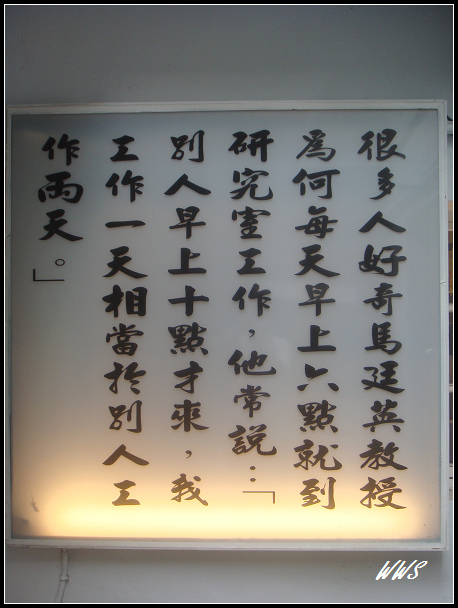 很多人好奇馬廷英教授
為何每天早上六點就到
研究室工作，他常說：「
別人早上十點才來，我
工作一天相當於別人工
作兩天。」
WWS